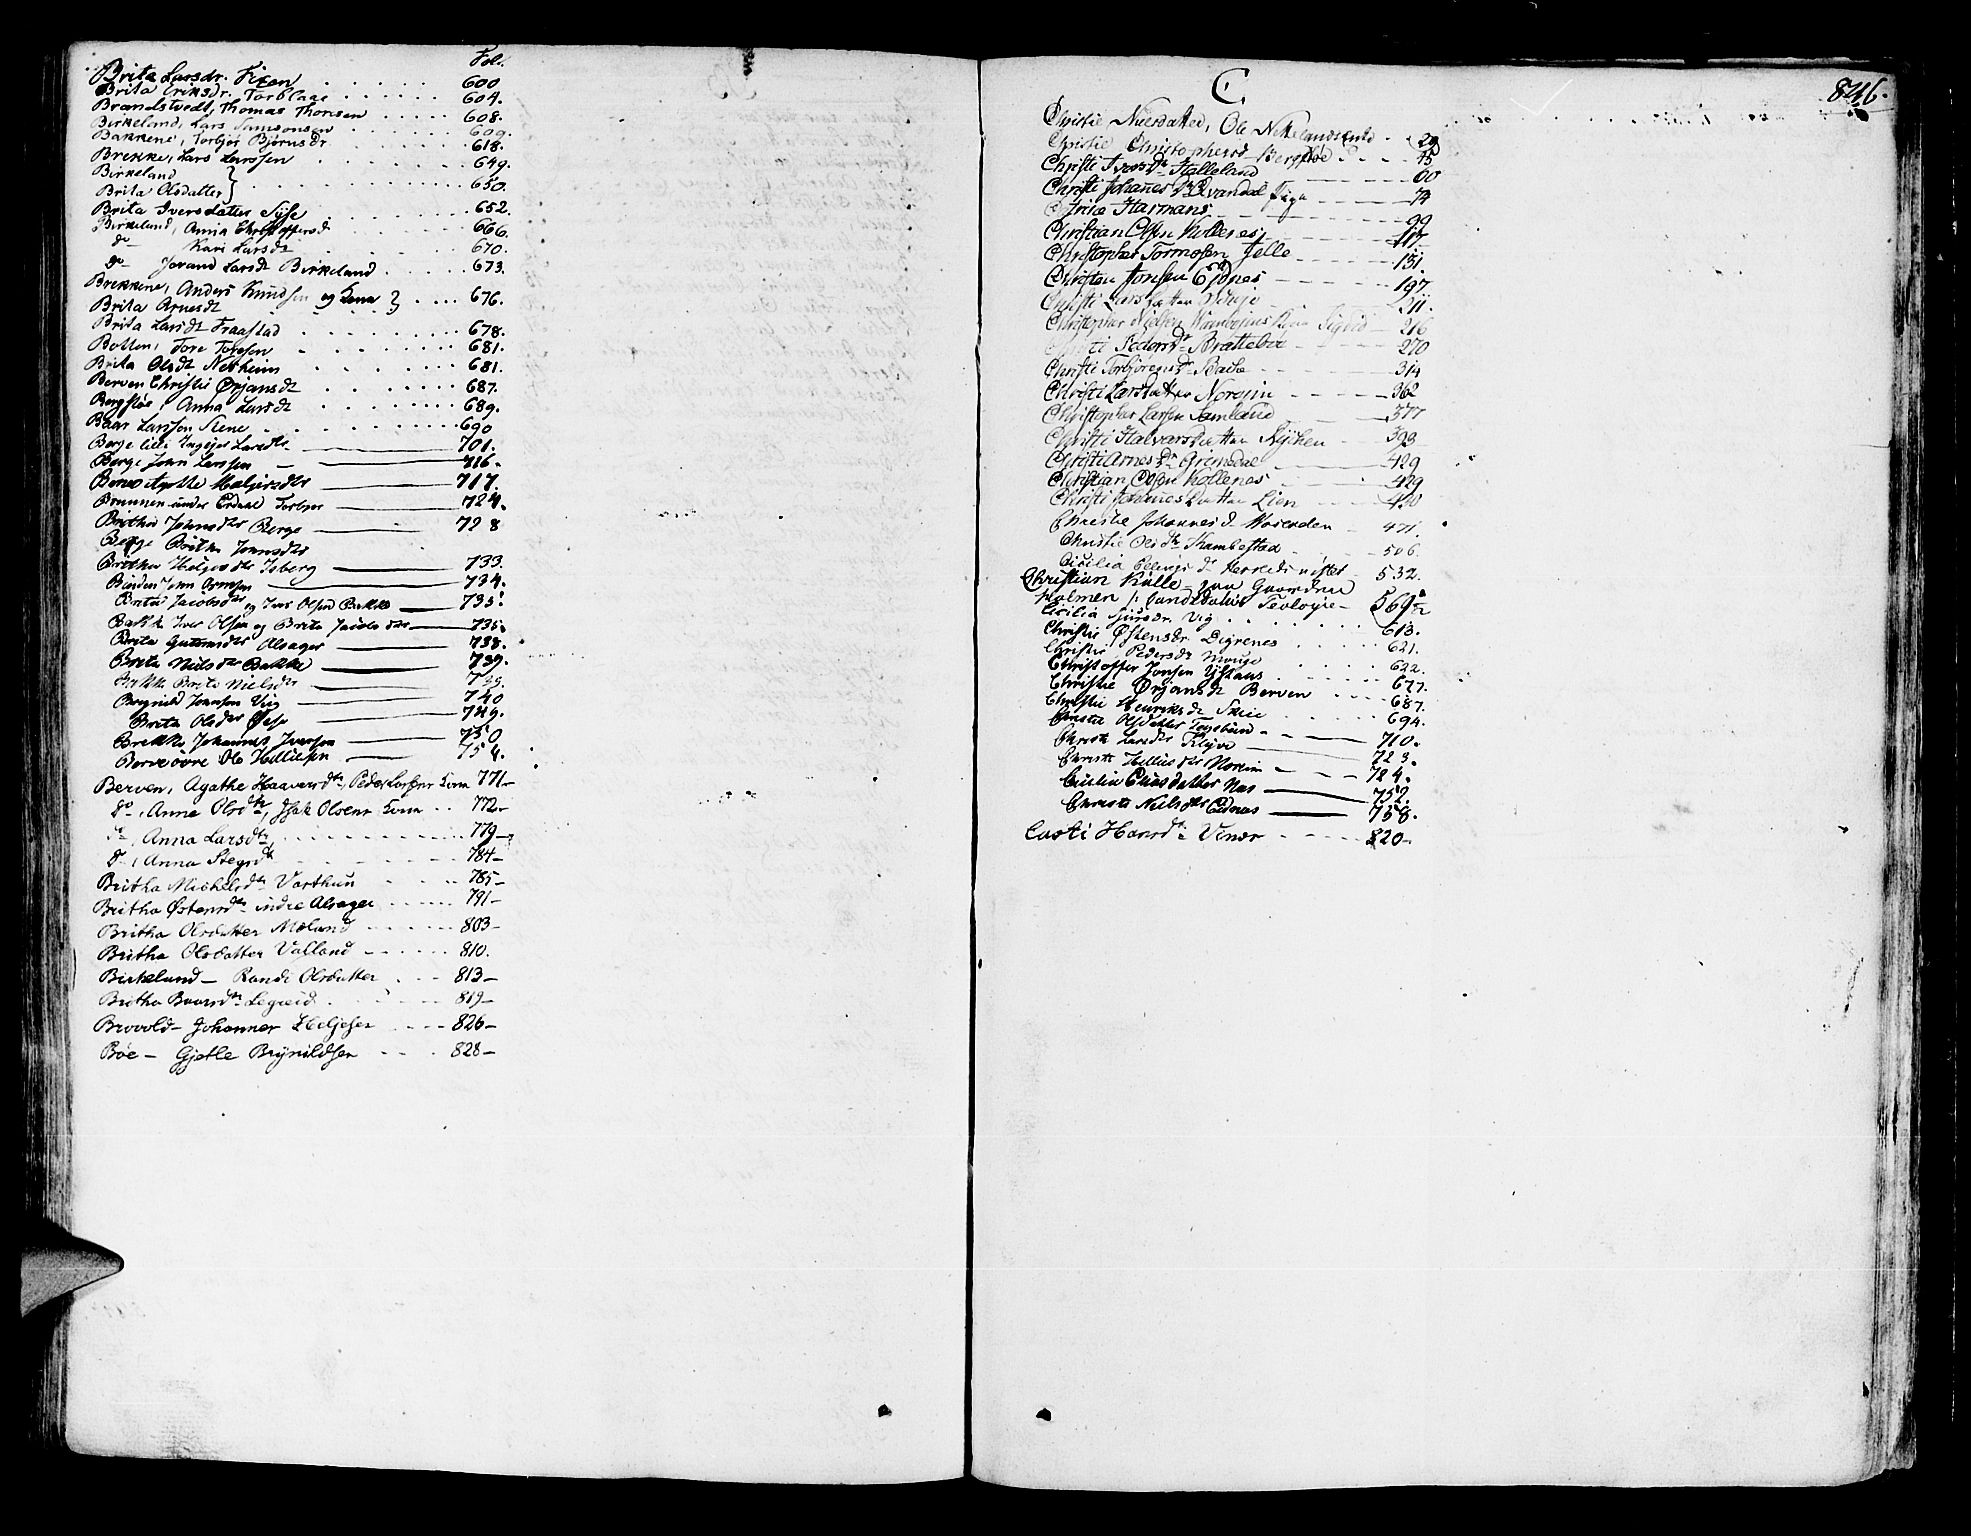 Fol.
Brita Larsdr. Fixen . . . . . . 600
Brita Eriksdr. Torblaae . . . . . . 604.
Brandstvedt, Thomas Thomsen . . . . 608.
Birkeland, Lars Samsonsen . . . . 609.
Bakkene, Torbjør Bjørnsdr . . . . 618.
Brekke, Lars Larssen . . . . . . 649.
Birkeland }
Brita Olsdatter } . . . . . . . 650.
Brita Iversdatter Syse . . . . . 652.
Birkeland, Anna Christoffersd . . . . 666.
do Kari Larsdt . . . . . 670.
do Jorand Larsdt Birkeland . . . . 673.
Brekkene, Anders Knudsen og Kona } . . . . 676.
Brita Arnesdt
Brita Larsdt Fraastad . . . . . . 678.
Botten, Tore Toresen . . . . . . 681.
Brita Olsdt Nesheim . . . . . . 681.
Berven Christi Ørjansdt . . . . . 687.
Bergstøe, Anna Larsdt . . . . . . 689.
Baar Larsson Tiene . . . . . . . 690
Berge lille Ingejer Larsdtr. — 701.
Berge John Larssen — 716.
Berve Agatha Helgesdtr — 717.
Brunnen under Erdahl Torbjør — 724.
Britha Johnsdtr Berge — 728
Berge Britha Johnsdtr
Britha Helgesdtr Isberg — 733.
Binden John Ormsen — 734.
Brita Jacobsdtr og Iver Olsen Bakke — 735.
Bakke Iver Olsen og Brita Jacobsdtr — 735.
Brita Guttormsdtr Alsager — 738.
Brita Nielsdtr Bakke — 739.
Bakke Brita Nielsdtr — 739.
Brynild Johnsen Vig — 740
Brita Olsdtr Øase — 749.
Brekke Johannes Iversen — 750
Berve øvre Ole Helliesen — 754.
Berven, Agathe Haaversdtr, Peder Larsens Kone 771—
do, Anna Olsdtr, Isak Olsens Kona . . 772—
do, Anna Larsdtr, . . . . . . . 779—
do, Anna Stegsdt . . . . . 784—
Britha Michelsdtr Varthun . . . . 785—
Britha Østensdtr indre Alsager . . . . . 791—
Britha Olsdatter Mæland . . . . . 803—
Britha Olsdatter Valland . . . . . 810.
Birkeland — Randi Olsdatter . . . 813—
Britha Baarsdtr Legreid . . . . 819—
Brovold — Johannes Heljesen . . . . 826—
Bøe — Gjetle Brynildsen . . . . 828—
C.
846.
Christie Nielsdatter, Ole . 29
Christie Christophersd Bergstøe . . . . 45
Christi Iversdtr Halleland 60
Christi Johanes dtr Qvandal Pige 74
Hartmans 99
Christian Olsen Kollenes 117
Christopher Tormosen Jelle 151.
Christen Jonsen Eydnes 197
Christi Larsdatter 211.
Christopher Nielsen Kone Sigrid 216
Christi Pedersdr Brattebøe 270
Christi Torbjørensdr Bache 314
Christi Larsdatter Norem 362
Christopher Larsen Samland 377
Christi Halvarsdatter Nyhen 393
Christi Arnesdr Grimsdal 429
Christian Olsen Kollenes 429
Christi Johannesdatter Lien 450
Christie Johannesd. 471.
Christie Olsdtr Kambestad 506.
Cicilia Ellingsdr Herredsvistet 532.
Christian Kølle — paa Gaarden
Holmen, Candidatus Teologie — 569½
Cicilia Sjursdr Vig . . . . . . 613.
Christi Østensdr. Digrenes . . . . . 621.
Christi Pedersdr Mauge . . . . . 622.
Christoffer Jonsen Ystaas . . . . 677.
Christie Ørjansdt Berven . . . . 687.
Christie Henriksdt Skeie . . . . . 694.
Christi Olsdatter 710.
Christi Larsdtr Kløve — 723.
Christi Helliesdtr Norem — 784.
Cicilia Eliasdatter Næs — 752.
Christi Nielsdtr Eidnæs — 758.
Casti Hansdtr Vinæs . . . . . 820—